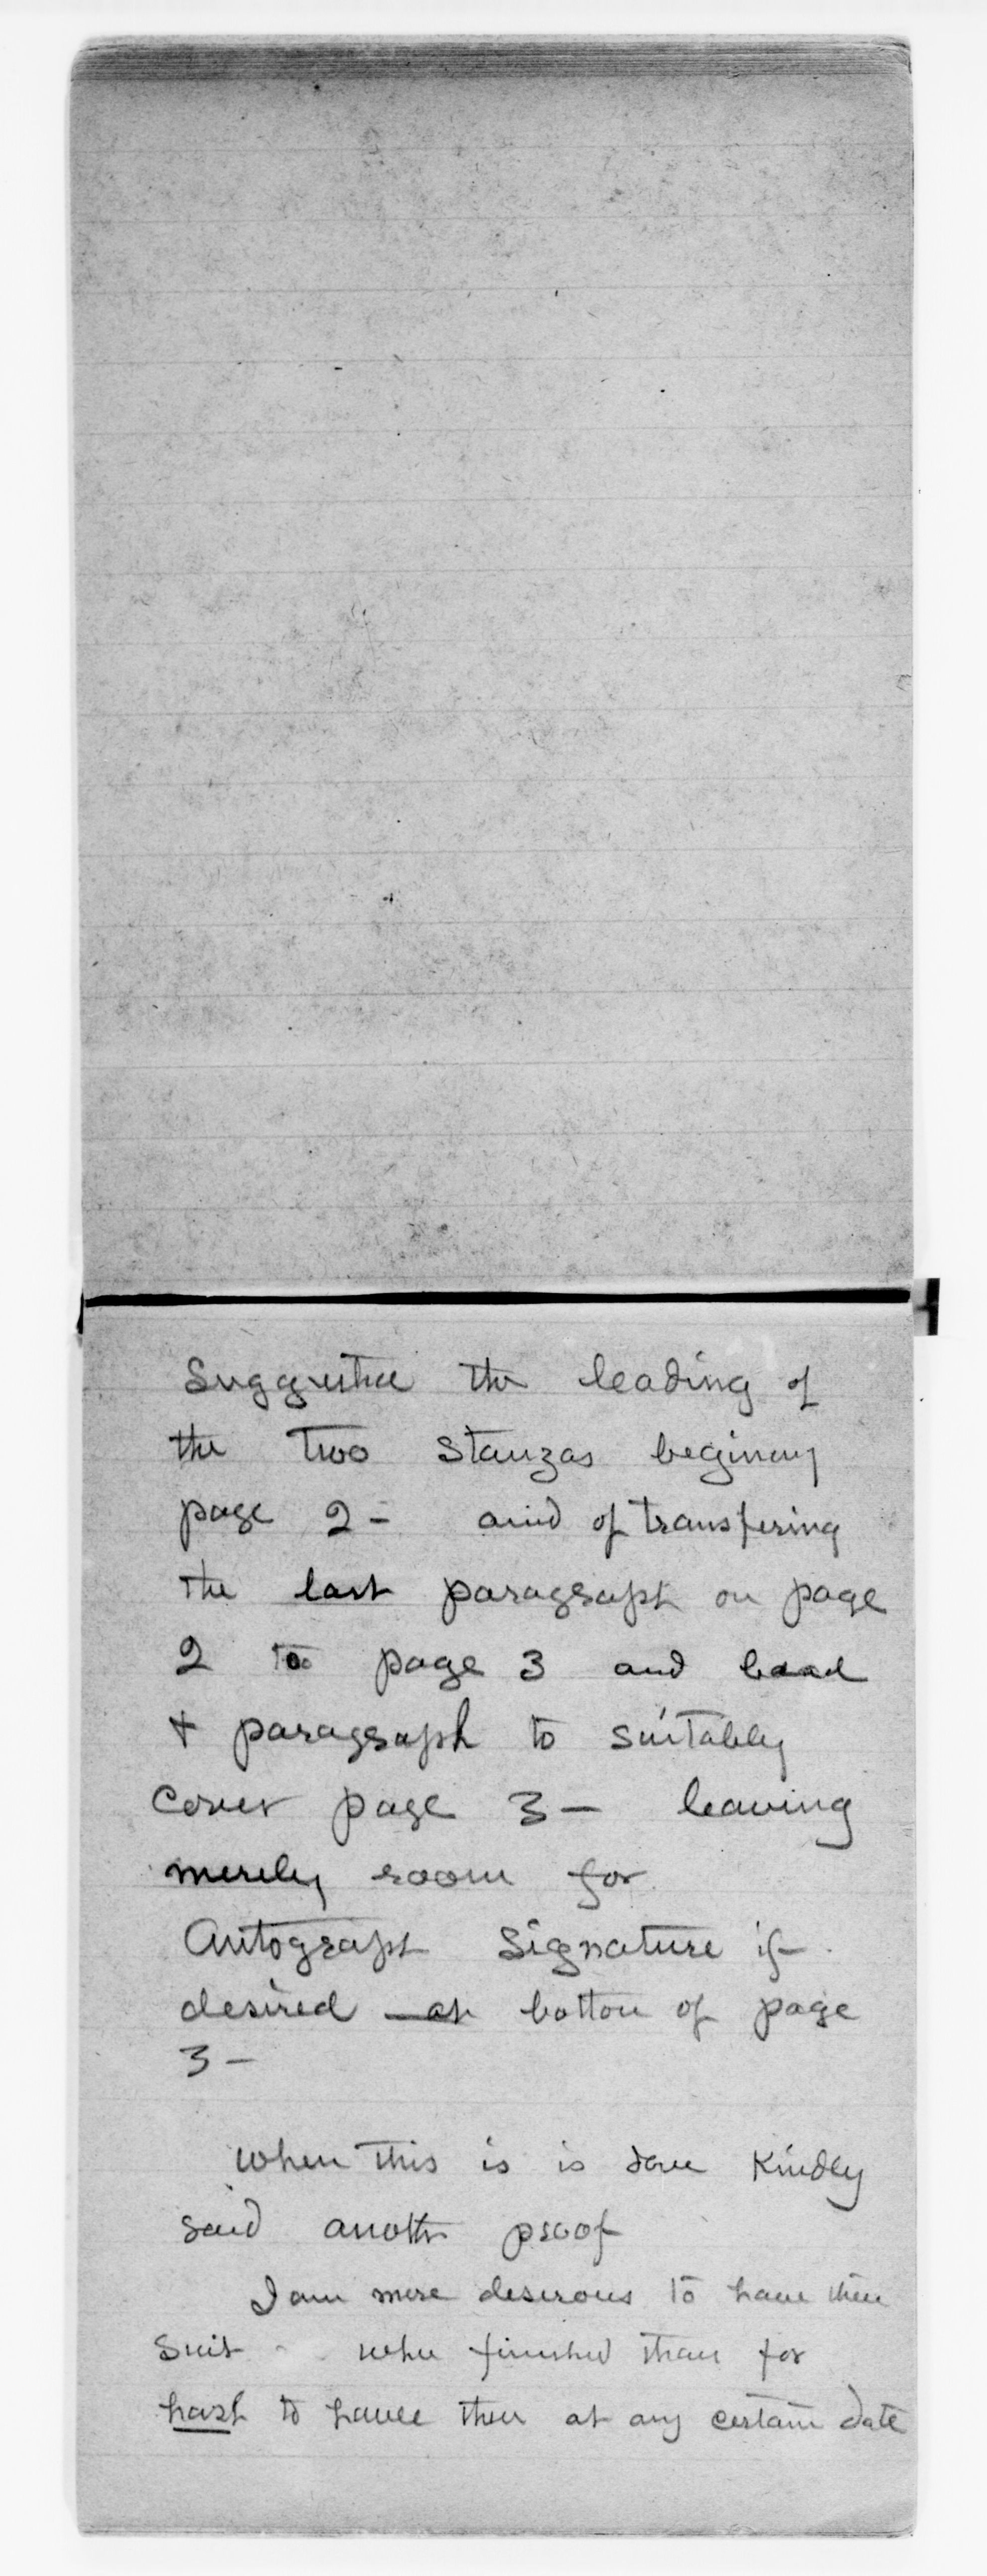 Suggestion the leading of
the two stanzas begining
page 2 - and of transfering
the last paragraph on page
2 to page 3 and lead
+ paragraph to suitably
cover page 3 - leaving
merely room for
Autograph Signature if
desired - at bottom of page
3 -
When this is is done Kindly
send another proof
I am more desirous to have them
suit when finished than for
hast to have them at any certain date